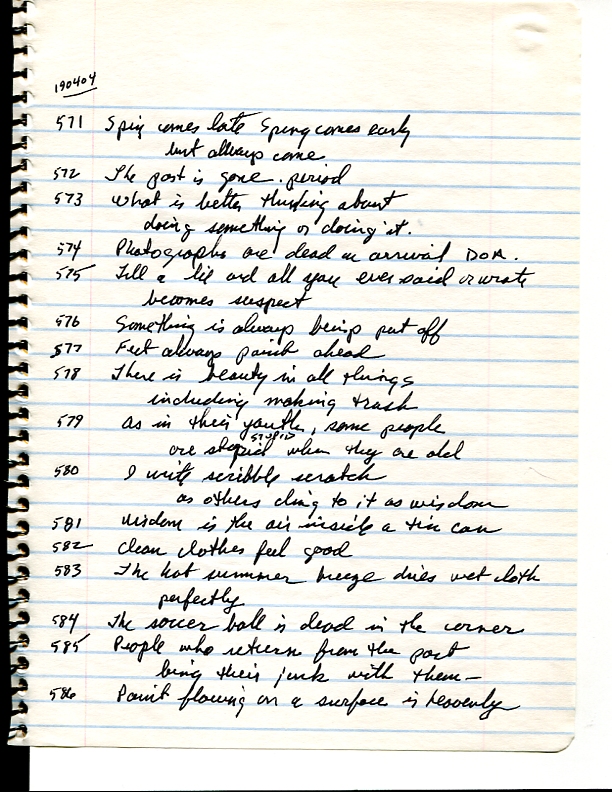 190404
571 Spring comes late Spring comes early
but always come.
572 The past is gone. period
573 What is better thinking about
doing something or doing it.
574 Photographs are dead on arrival DOA.
575 Tell a lie and all you ever said or wrote
becomes suspect
576 Something is always being put off
577 Feet always point ahead
578 There is beauty in all things
including making trash
579 As in their youth, some people
STUPID
are stupid when they are old
580 I write scribble scratch
as others cling to it as wisdom
581 wisdom is the air inside a tin can
582 clean clothes feel good
583 The hot summer breeze dries wet cloth
perfectly
584 The soccer ball is dead in the corner
585 People who return from the past
bring their junk with them—
586 Paint flowing on a surface is heavenly